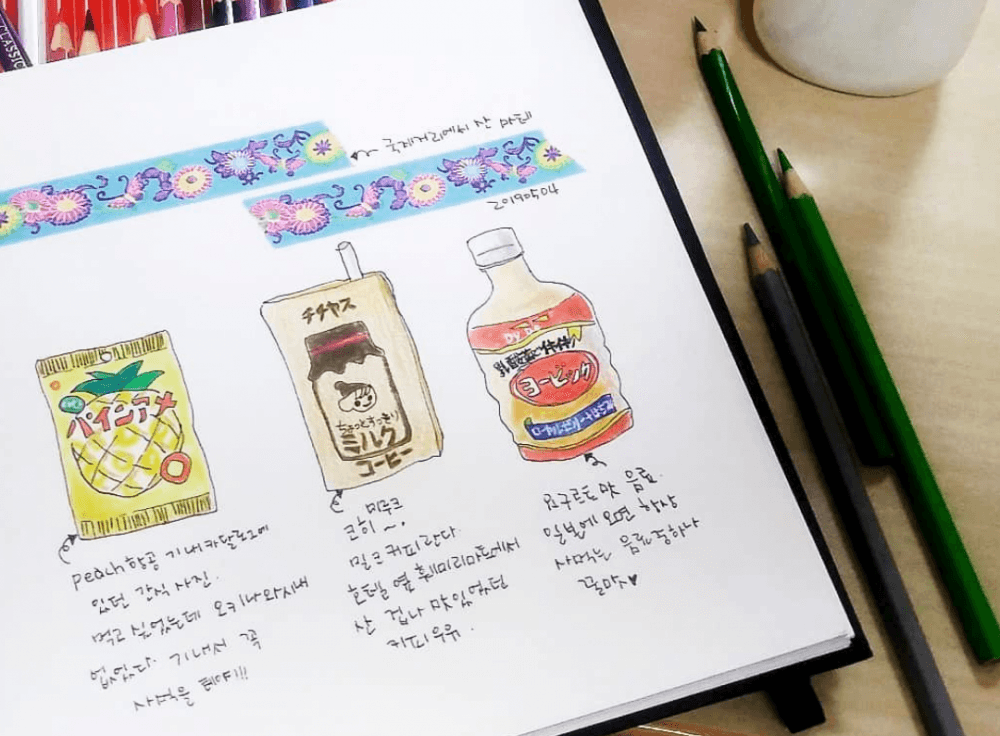 CLASSIC
국제거리에서 산 마테
20190504
パインアメ
チチヤス
ちょっとすっきり
ミルク
コーヒー
DyDo
乳酸菌でイキイキ
ヨービック
peach항공 기내 카달로그에
있던 간식 사진.
먹고 싶었는데 오키나와시내
없었다. 기내에서 꼭
사먹을 테야!!!
미루크
코히~.
밀크커피란다.
호텔 옆 훼미리마트에서
산 겁나 맛있었던
커피우유.
요구르트 맛 음료.
일본에 오면 항상
사먹는 음료중하나
꿀맛♥